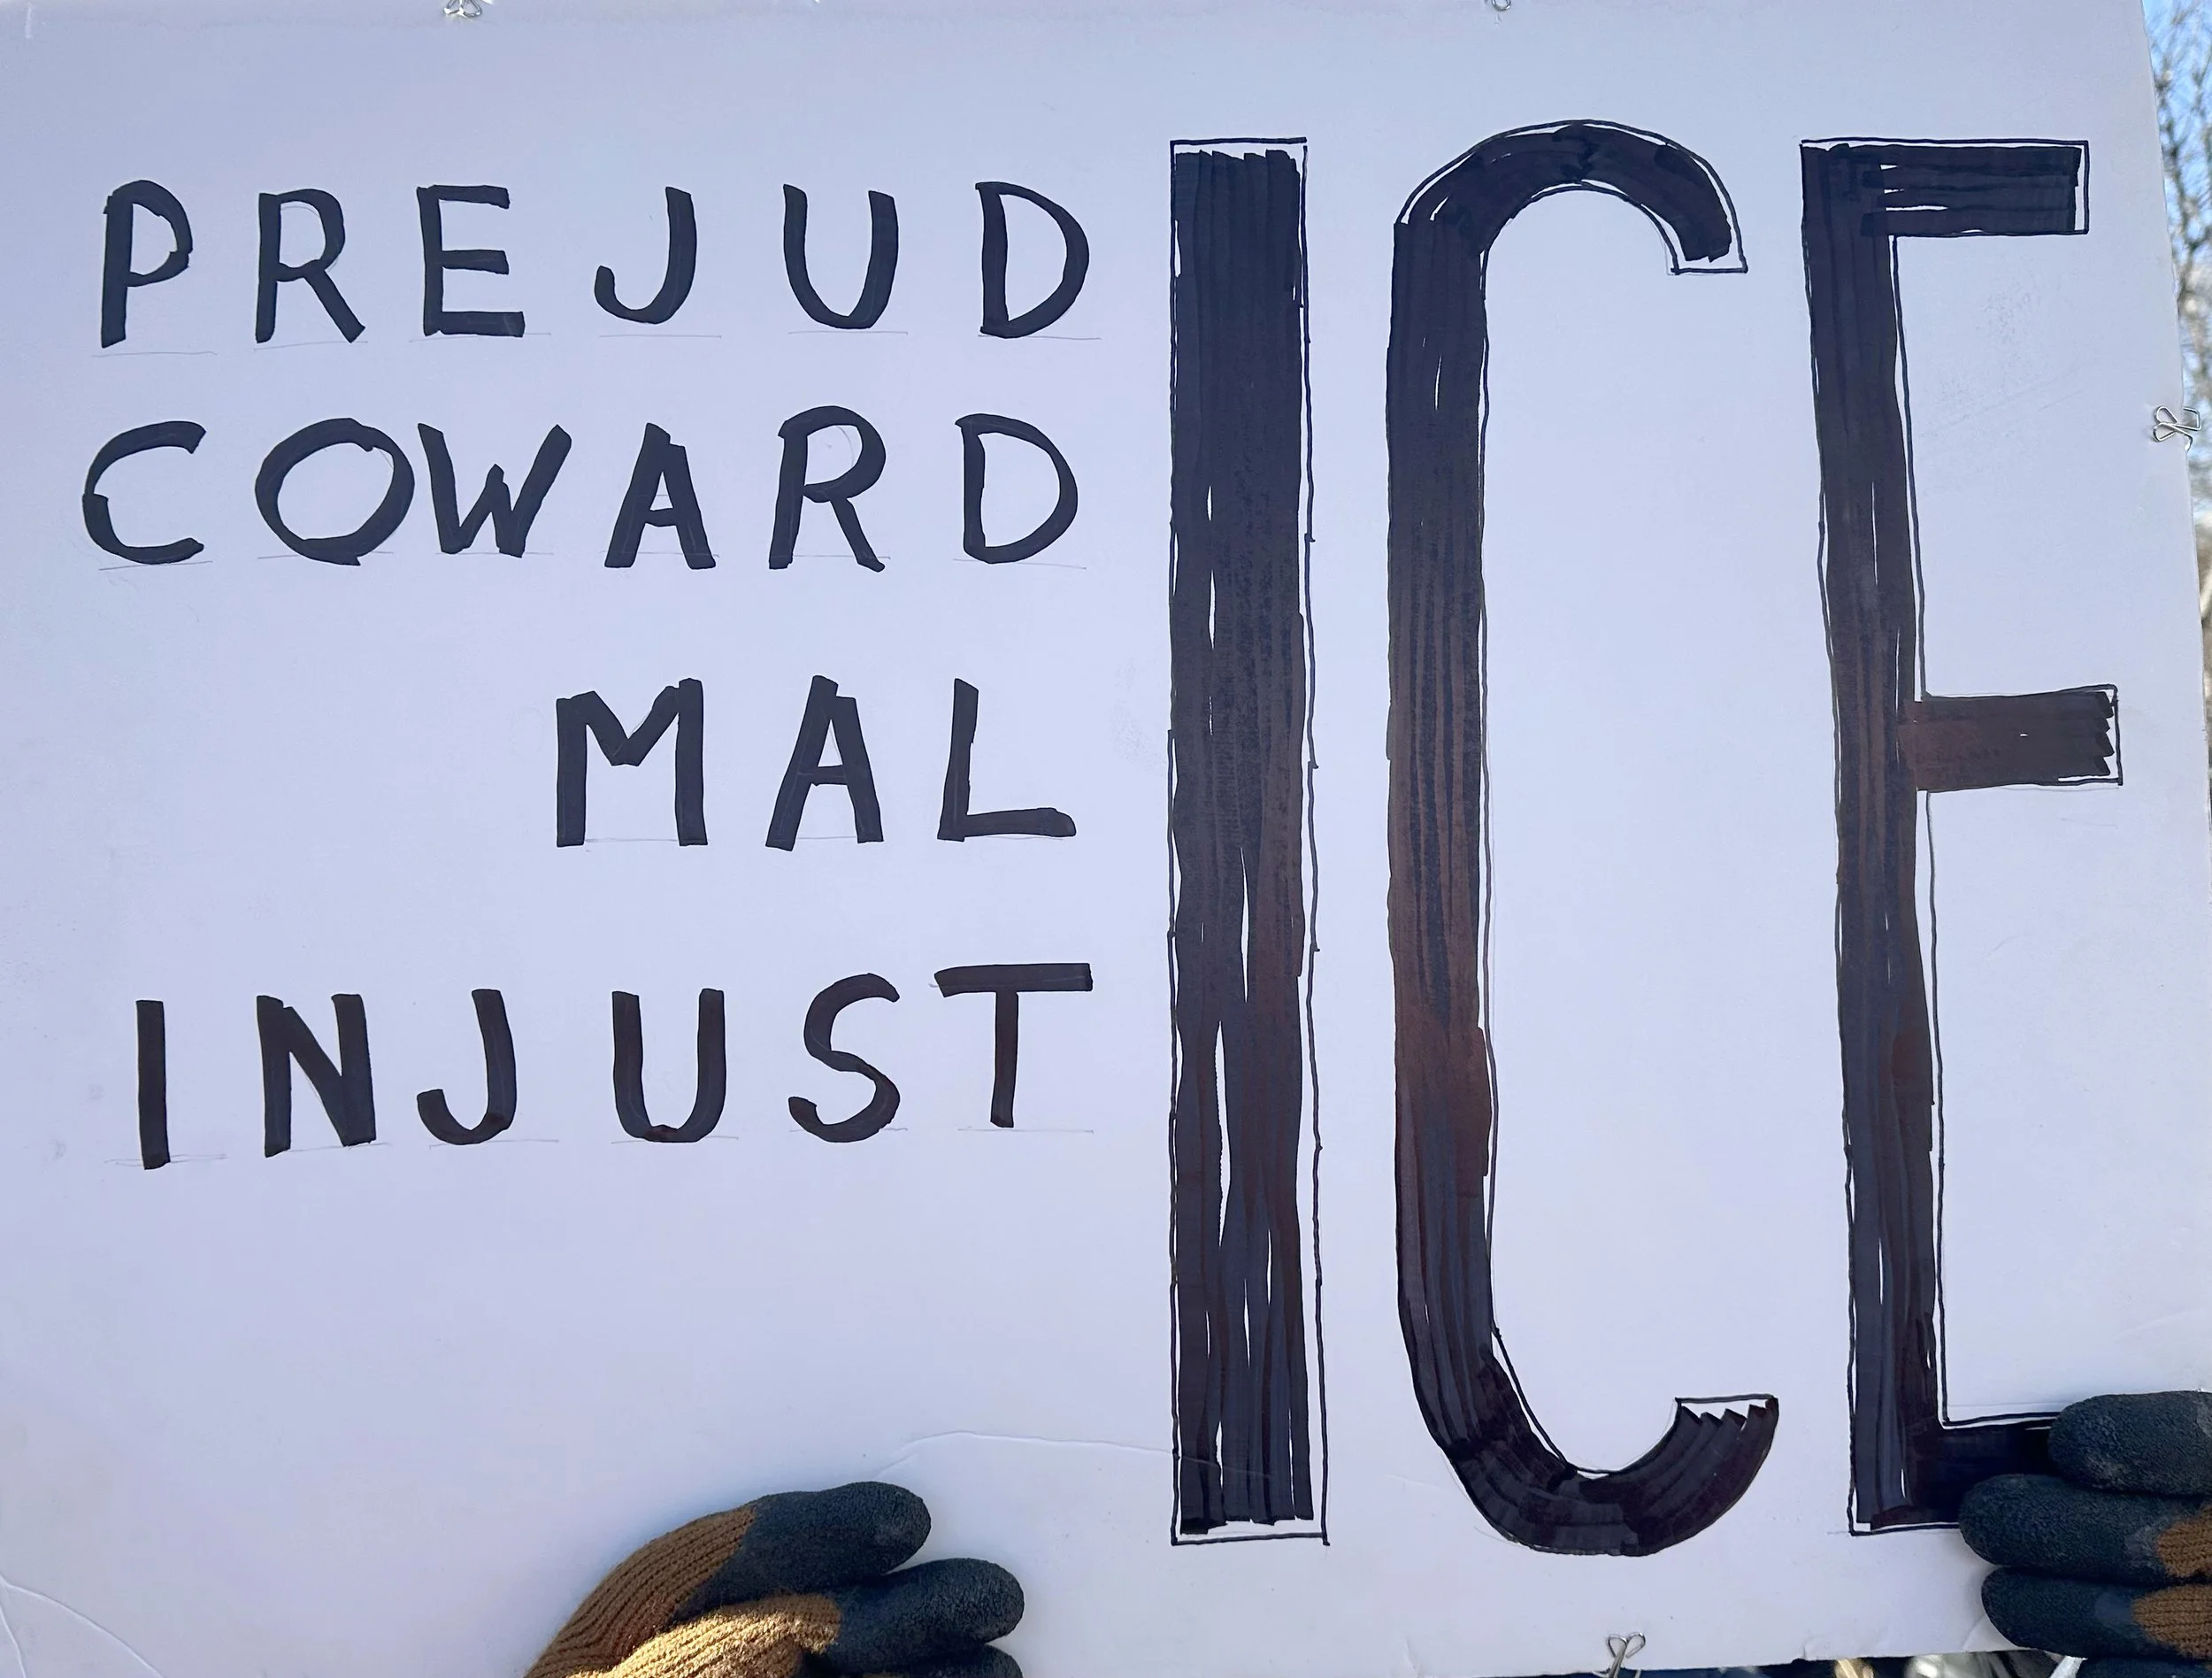 PREJUD ICE
COWARD
MAL
INJUST